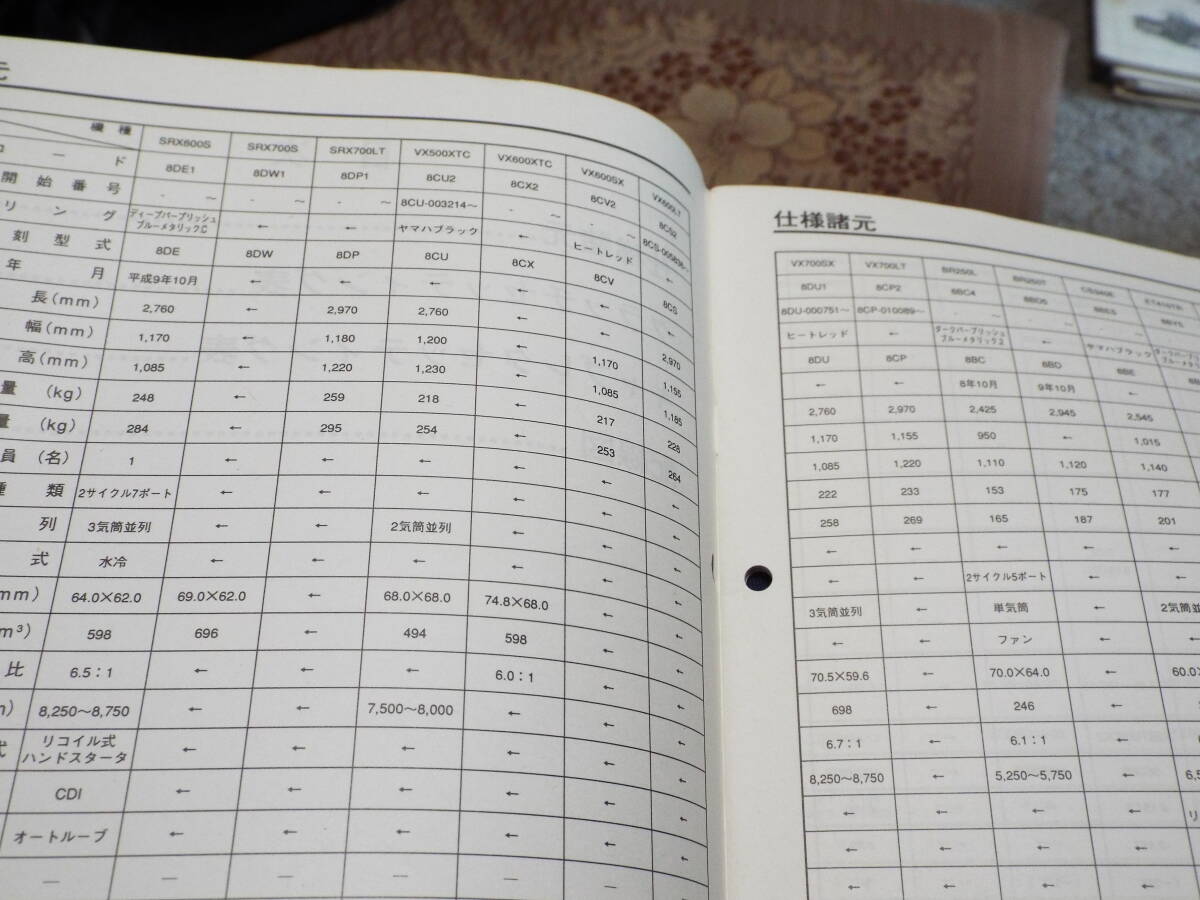 元
機種 SRX600S SRX700S SRX700LT VX500XTC VX600XTC VX600SX VX600LT
コード 8DE1 8DW1 8DP1 8CU2 8CX2 8CV2 8CS2
開始番号 - ～ - ～ - ～ 8CU-003214～ - ～ - ～ 8CS-005836～
リング ディープパープリッシュブルーメタリックC ← ← ヤマハブラック ← ヒートレッド ←
刻型式 8DE 8DW 8DP 8CU 8CX 8CV 8CS
年月 平成9年10月 ← ← ← ← ← ←
長(mm) 2,760 ← 2,970 2,760 ← ← 2,970
幅(mm) 1,170 ← 1,180 1,200 ← 1,170 1,155
高(mm) 1,085 ← 1,220 1,230 ← 1,085 1,185
量(kg) 248 ← 259 218 ← 217 228
量(kg) 284 ← 295 254 ← 253 264
員(名) 1 ← ← ← ← ← ←
種類 2サイクル7ポート ← ← ← ← ← ←
列 3気筒並列 ← ← 2気筒並列 ← ← ←
式 水冷 ← ← ← ← ← ←
mm) 64.0×62.0 69.0×62.0 ← 68.0×68.0 74.8×68.0 ← ←
m³) 598 696 ← 494 598 ← ←
比 6.5：1 ← ← ← 6.0：1 ← ←
m) 8,250～8,750 ← ← 7,500～8,000 ← ← ←
式 リコイル式ハンドスタータ ← ← ← ← ← ←
CDI ← ← ← ← ← ←
オートルーブ ← ← ← ← ← ←
— — — — — —
仕様諸元
VX700SX VX700LT BR250L BR250T CS340E ET410TR
8DU1 8CP2 8BC4
8DU-000751～ 8CP-010089～ - ～ - ～ - ～
ヒートレッド ← ダークパープリッシュブルーメタリック2 ← ヤマハブラック
8DU 8CP 8BC 8BD 8BE
← ← 8年10月 9年10月 ←
2,760 2,970 2,425 2,945 2,545
1,170 1,155 950 ← 1,015
1,085 1,220 1,110 1,120 1,140
222 233 153 175 177
258 269 165 187 201
← ← ← ← ←
← ← 2サイクル5ポート ← ←
3気筒並列 ← 単気筒 ← 2気筒並
← ← ファン ← ←
70.5×59.6 ← 70.0×64.0 ← 60.0
698 ← 246 ←
6.7：1 ← 6.1：1 ←
8,250～8,750 ← 5,250～5,750 ← 6,5
← ← ← ← リ
← ← ← ←
← ← ← ←